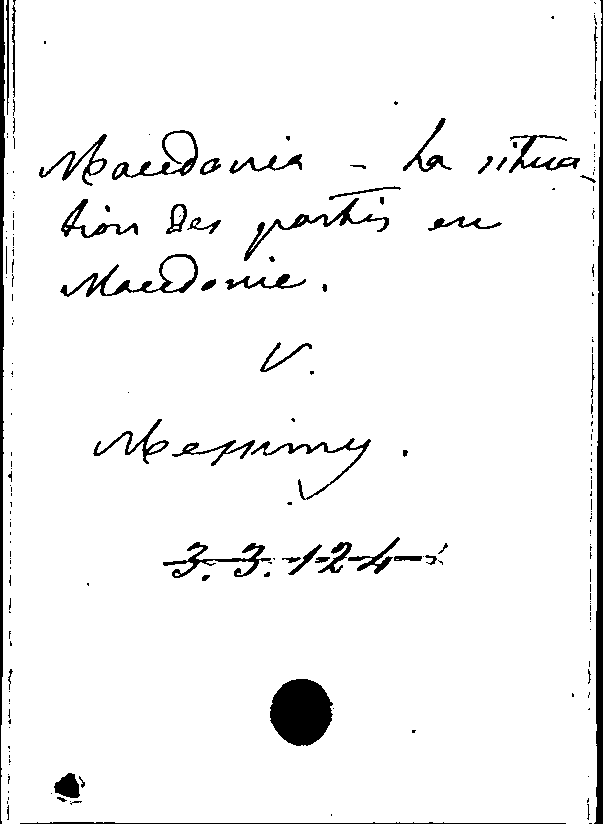 Macedonia - La situa-
tion des partis en
Macedonie.
V.
Messimy.
3. 3. 124